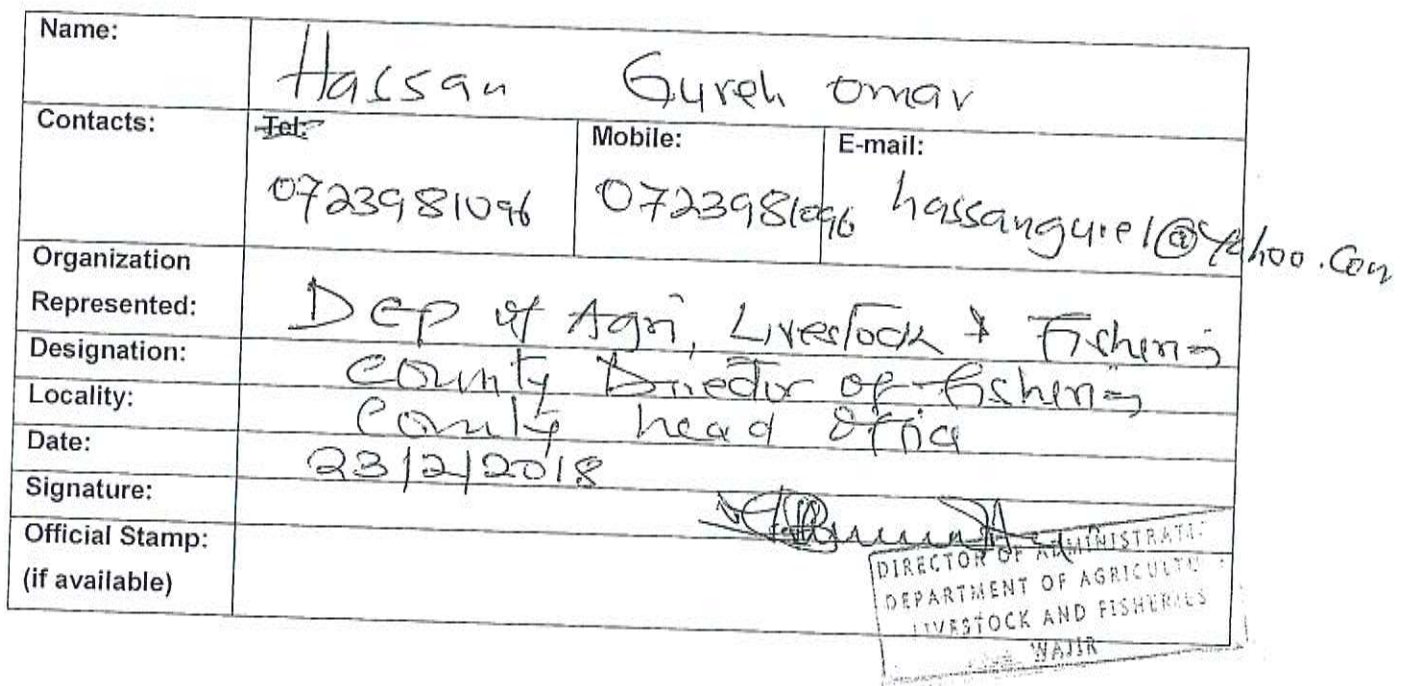 Name: Hassan Gureh Omar
Contacts: Tel: Mobile: E-mail:
0723981096 0723981096 hassangure1@Yahoo.Com
Organization
Represented: Dep of Agri, Livestock & Fisheries
Designation: County Director of fisheries
Locality: County head office
Date: 23/2/2018
Signature:
Official Stamp:
(if available)
DIRECTOR OF ADMINISTRATI
DEPARTMENT OF AGRICULTU
LIVESTOCK AND FISHERIES
WAJIR